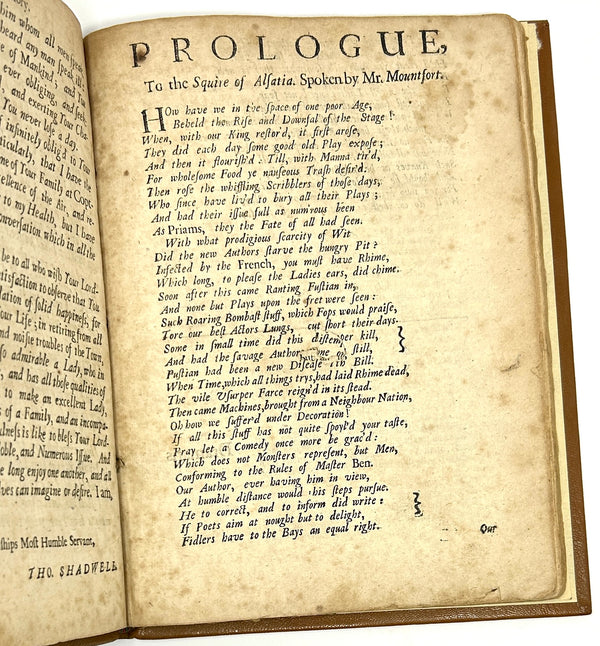 ry;
him whom all men speak
heard any man speak, till
e of Mankind, and in
ever obliging, and seek-
and exerting Your Cha-
You never lose a day.
of infinitely oblig'd to Your
ticularly, that I have the
me of Your Family at Copt-
cellence of the Air, and re-
to my Health, but I have
onversation which in all the
be to all who wish Your Lord-
atisfaction to observe that You
dation of solid happiness; for
our Life; in retiring from all
and noise troubles of the Town,
so admirable a Lady, who in
and has all those qualities of
to make an excellent Lady,
s of a Family, and an incompa-
fulness is like to bless Your Lord-
oble, and Numerous Issue. And
e long enjoy one another, and all
ves can imagine or desire. I am,
ships Most Humble Servant,
THO. SHADWELL.
PROLOGUE,
To the Squire of Alsatia. Spoken by Mr. Mountfort.
HOw have we in the space of one poor Age,
Beheld the Rise and Downfal of the Stage!
When, with our King restor'd, it first arose,
They did each day some good old Play expose;
And then it flourish'd: Till, with Manna tir'd,
For wholesome Food ye nauseous Trash desir'd.
Then rose the whiffling Scribblers of those days,
Who since have liv'd to bury all their Plays;
And had their issue full as num'rous been
As Priams, they the Fate of all had seen.
With what prodigious scarcity of Wit
Did the new Authors starve the hungry Pit?
Infected by the French, you must have Rhime,
Which long, to please the Ladies ears, did chime.
Soon after this came Ranting Fustian in,
And none but Plays upon the fret were seen:
Such Roaring Bombast stuff, which Fops would praise,
Tore our best Actors Lungs, cut short their days.
Some in small time did this distemper kill,
And had the savage Authors gone on still,
Fustian had been a new Disease i'th Bill.
When Time, which all things trys, had laid Rhime dead,
The vile Usurper Farce reign'd in its stead.
Then came Machines, brought from a Neighbour Nation,
Oh how we suffer'd under Decoration!
If all this stuff has not quite spoyl'd your taste,
Pray let a Comedy once more be grac'd:
Which does not Monsters represent, but Men,
Conforming to the Rules of Master Ben.
Our Author, ever having him in view,
At humble distance would his steps pursue.
He to correct, and to inform did write:
If Poets aim at nought but to delight,
Fidlers have to the Bays an equal right.
Our